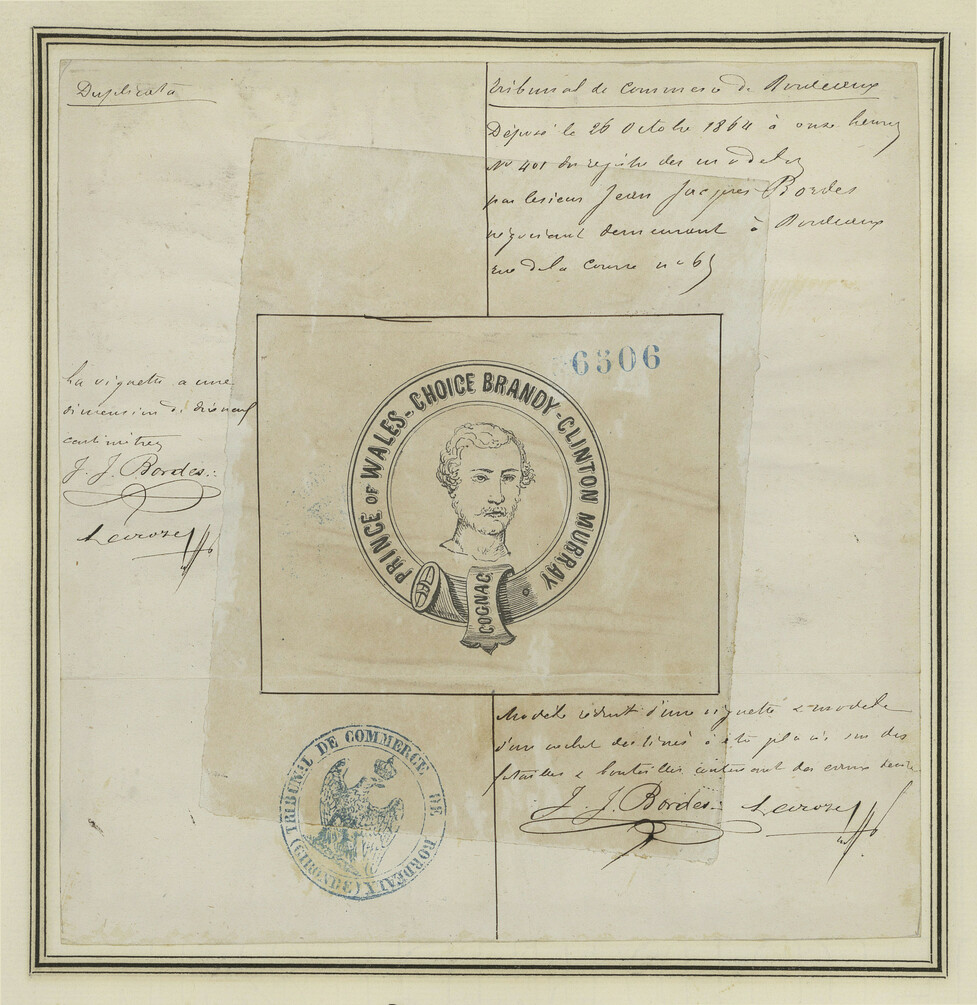 Duplicata
Tribunal de Commerce de Bordeaux
Déposé le 26 Octobre 1864 à onze heures
No 401 du registre des modeles
par le sieur Jean Jacques Bordes
négociant demeurant à Bordeaux
rue de la Course no 65
6506
PRINCE OF WALES - CHOICE BRANDY - CLINTON MURRAY
COGNAC
La vignette a une
dimension de dix neuf
centimètres
J. J. Bordes
Laroze
Modèle réduit d'une vignette & modele
d'un cachet destinés à etre placés sur des
futailles & bouteilles contenant des eaux de vie
J. J. Bordes Laroze
TRIBUNAL DE COMMERCE DE BORDEAUX (GIRONDE)